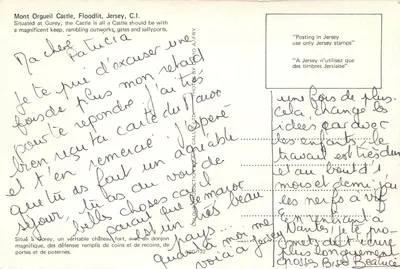 Mont Orgueil Castle, Floodlit, Jersey, C.I.
Situated at Gorey, the Castle is all a Castle should be with
a magnificent keep, rambling outworks, gates and sallyports.
Ma chère Patricia
Je te prie d'excuser une
fois de plus mon retard
pour te répondre j'ai très
bien reçu ta carte du Maroc
et t'en remercie j'espère
que tu as fait un agréable
séjour, tu as du voir de
belles choses car il
parait que le maroc
est un très beau
pays...
quand à moi me
voici à Jersey
Situé à Gorey, un véritable château fort, avec un donjon
magnifique, des défense remplis de coins et de recoins, de
portes et de poternes.
"Posting in Jersey
use only Jersey stamps"
"A Jersey n'utilisez que
des timbres Jersiaise"
une fois de plus.
cela change les
idées car avec
les enfants, le
travail est très dur
et au bout d'1
mois et demi, j'ai
les nerfs à vif
En rentrant à
Nantes, je te pro-
mets de t'écrire
plus longuement
Grosses Bises Béatrice